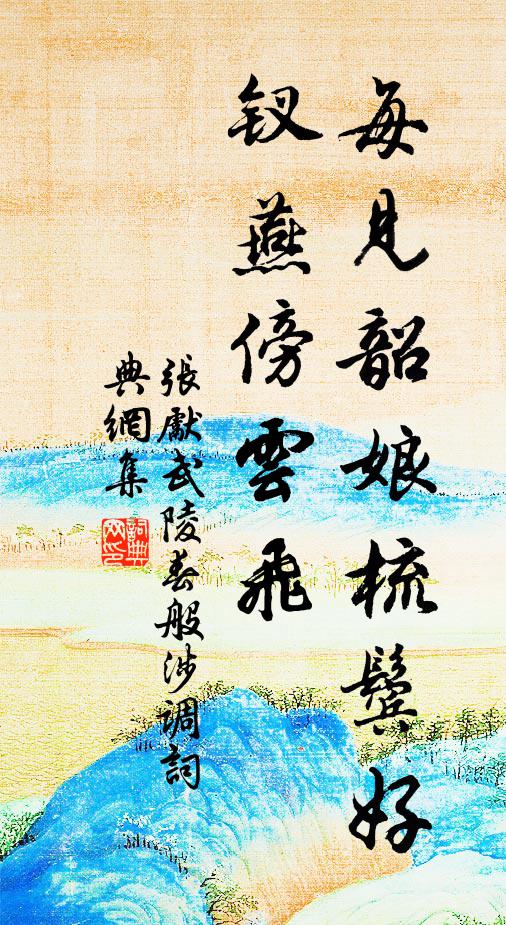 每見韶娘梳鬢好
釵燕傍雲飛
張獻武陵春般涉調詞
典網集
詞典
网印